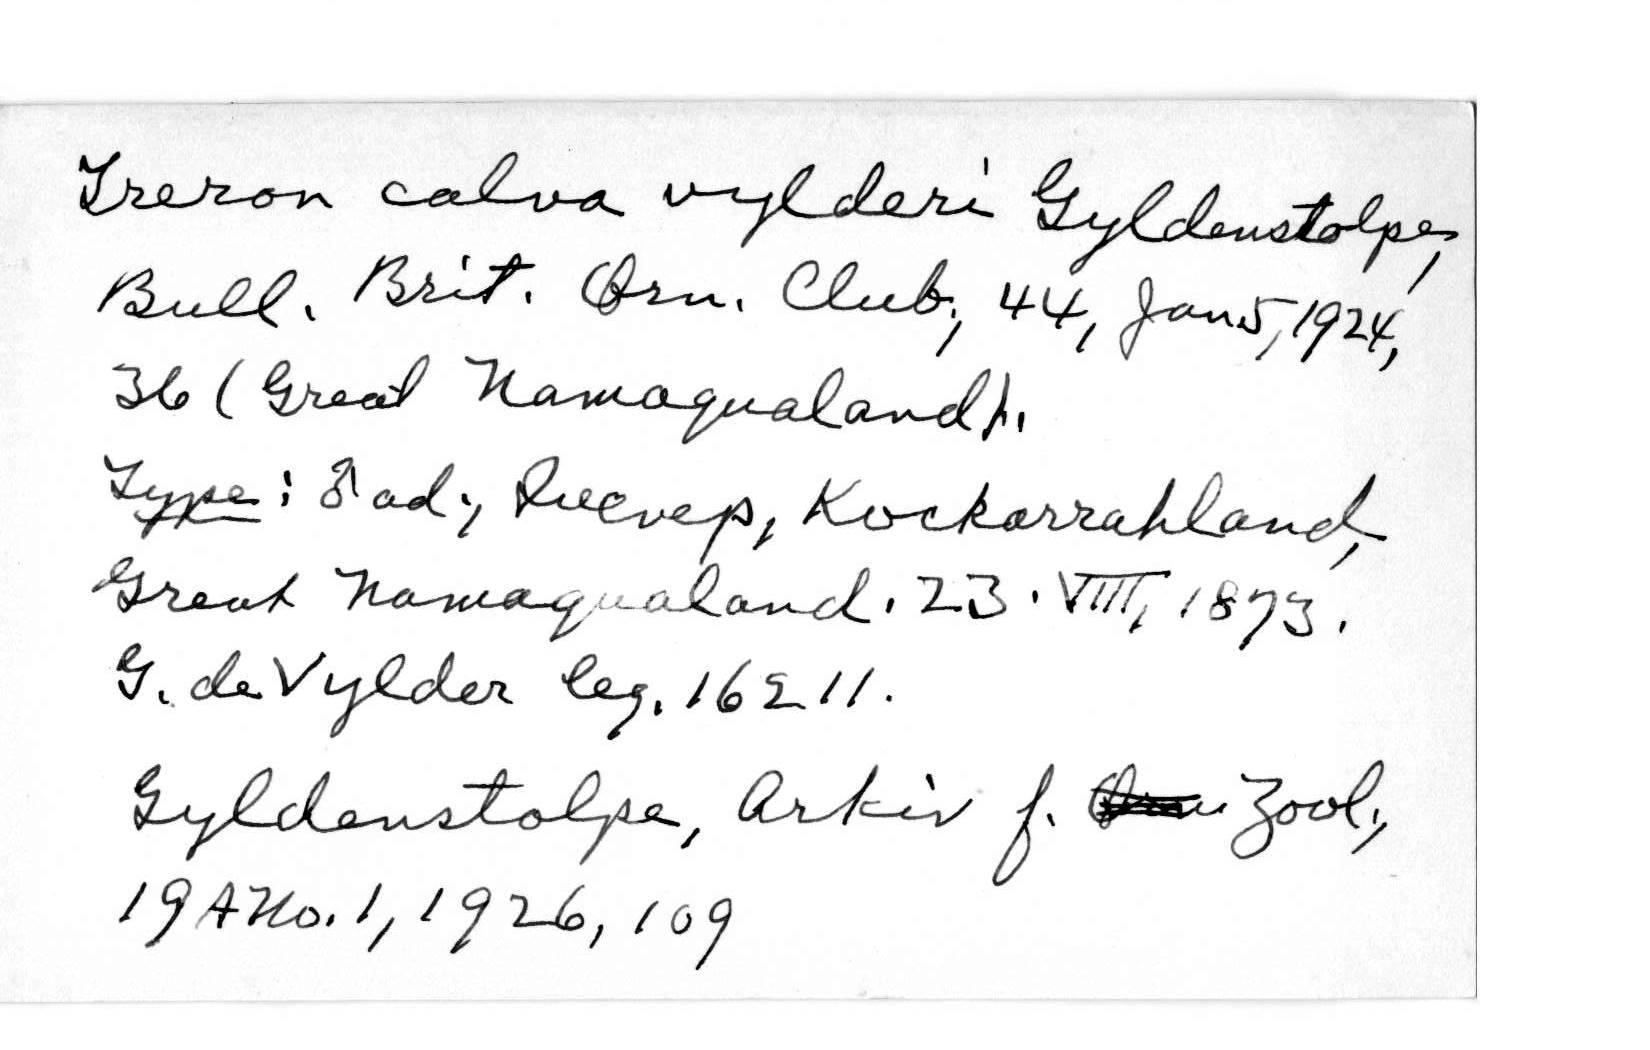 Treron calva vylderi Gyldenstolpe,
Bull. Brit. Orn. Club., 44, Jan 5, 1924,
36 (Great Namaqualand).
Type: ♂ ad., Kockarrahland,
Great Namaqualand. 23. VIII, 1873.
G. de Vylder leg. 16211.
Gyldenstolpe, Arkiv f. Zool.,
19 A No. 1, 1926, 109